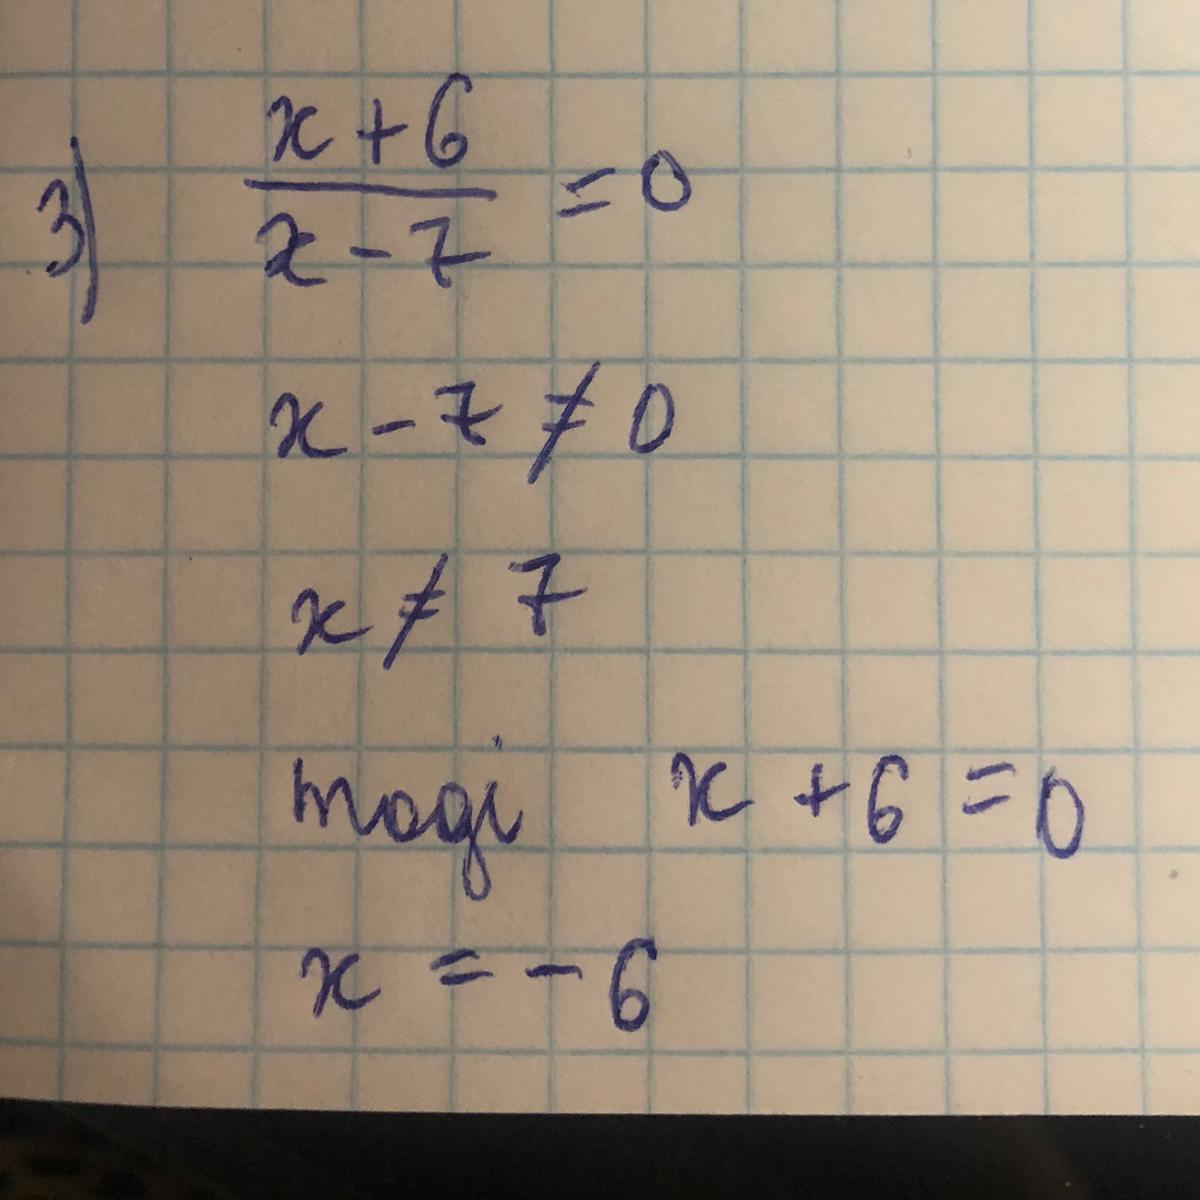 3) x+6/x-7 = 0
x - 7 ≠ 0
x ≠ 7
тоді x + 6 = 0
x = - 6